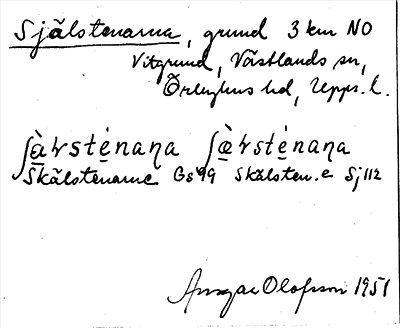 Själstenarna, grund 3 km NO
Vitgrund, Västlands sn,
Örbyhus hd, Upps. l.
ʃὰɽsténaɳa ʃæ̀ɽsténaɳa
Skälstename Gs 99 Skälsten.e Sj 112
Ansgar Olofsson 1951